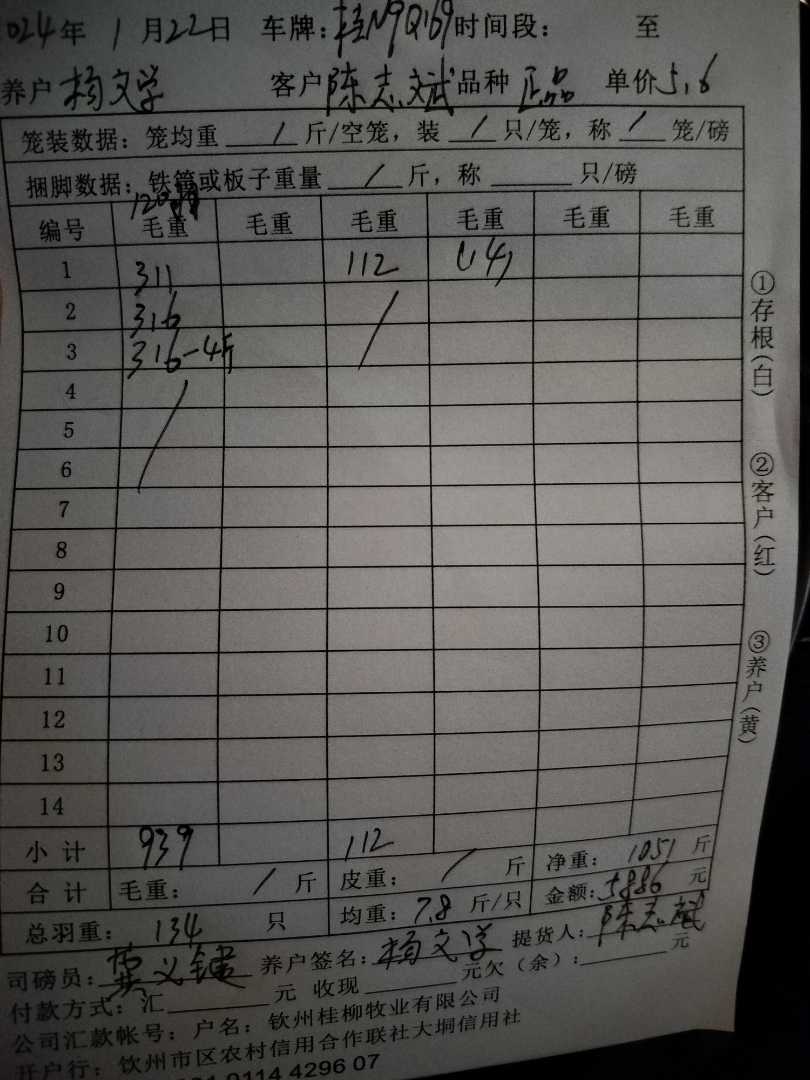 024年 1月22日 车牌:桂N9Q169 时间段: 至
养户 杨文学 客户 陈志斌 品种 正品 单价 5.6
笼装数据: 笼均重 / 斤/空笼, 装 / 只/笼, 称 / 笼/磅
捆脚数据: 铁筐或板子重量 / 斤, 称 只/磅
120
编号 毛重 毛重 毛重 毛重 毛重 毛重
1 311 112 (14)
2 316 /
3 316-4斤
4 /
5
6
7
8
9
10
11
12
13
14
小计 939 112
合计 毛重: / 斤 皮重: / 斤 净重: 1051 斤
总羽重: 134 只 均重: 7.8 斤/只 金额: 5886 元
司磅员: 养户签名: 杨文学 提货人: 陈志斌
付款方式: 汇 元 收现 元欠(余): 元
公司汇款帐号: 户名: 钦州桂柳牧业有限公司
开户行: 钦州市区农村信用合作联社大垌信用社
0114 4296 07
①存根(白) ②客户(红) ③养户(黄)